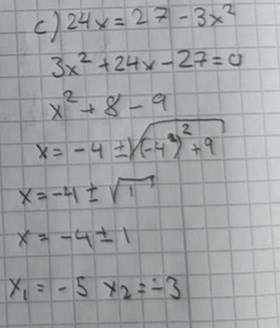 c) 24x = 27 - 3x²
3x² + 24x - 27 = 0
x² + 8 - 9
x = -4 ± √(-4)² + 9
x = -4 ± √1
x = -4 ± 1
x₁ = -5 x₂ = -3